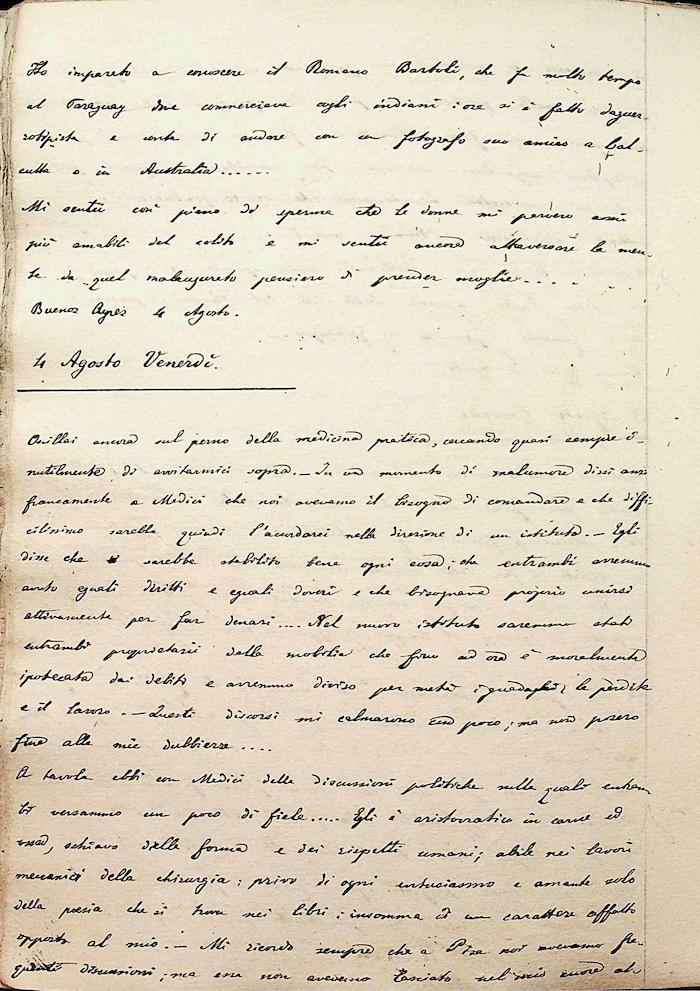 Ho imparato a conoscere il Romano Bartoli, che fu molto tempo
al Paraguay dove commerciava cogli indiani: ora si è fatto daguer-
rotipista e conta di andare con un fotografo suo amico a Cal-
cutta o in Australia......
Mi sentii così pieno di sperma che le donne mi parvero assai
più amabili del solito e mi sentii ancora attraversare la men-
te da quel malaugurato pensiero di prender moglie......
Buenos Ayres 4 Agosto.
4 Agosto Venerdì.
Oscillai ancora sul perno della medicina pratica, cercando quasi sempre i-
nutilmente di avvitarmici sopra. — In un momento di malumore dissi anzi
francamente a Medici che noi avevamo il bisogno di comandare e che diffi-
cilissimo sarebbe quindi l'acordarci nella direzione di un istituto. — Egli
disse che sarebbe stabilito bene ogni cosa; che entrambi avremmo
avuto eguali diritti e eguali doveri e che bisognava proprio unirsi
attivamente per far denari.... Nel nuovo istituto saremmo stati
entrambi proprietarii della mobilia che fino ad ora è moralmente
ipotecata dai debiti e avremmo diviso per metà i guadagni, le perdite
e il lavoro. — Questi discorsi mi calmarono un poco; ma non posero
fine alle mie dubbiezze....
A tavola ebbi con Medici delle discussioni politiche nelle quali entram-
bi versammo un poco di fiele..... Egli è aristocratico in carne ed
ossa, schiavo delle forma e dei rispetti umani; abile nei lavori
meccanici della chirurgia; privo di ogni entusiasmo e amante solo
della poesia che si trova nei libri: insomma è un carattere affatto
opposto al mio. — Mi ricordo sempre che a Pisa noi avevamo fre-
quenti discussioni; ma esse non avevano lasciato nel mio cuore al-